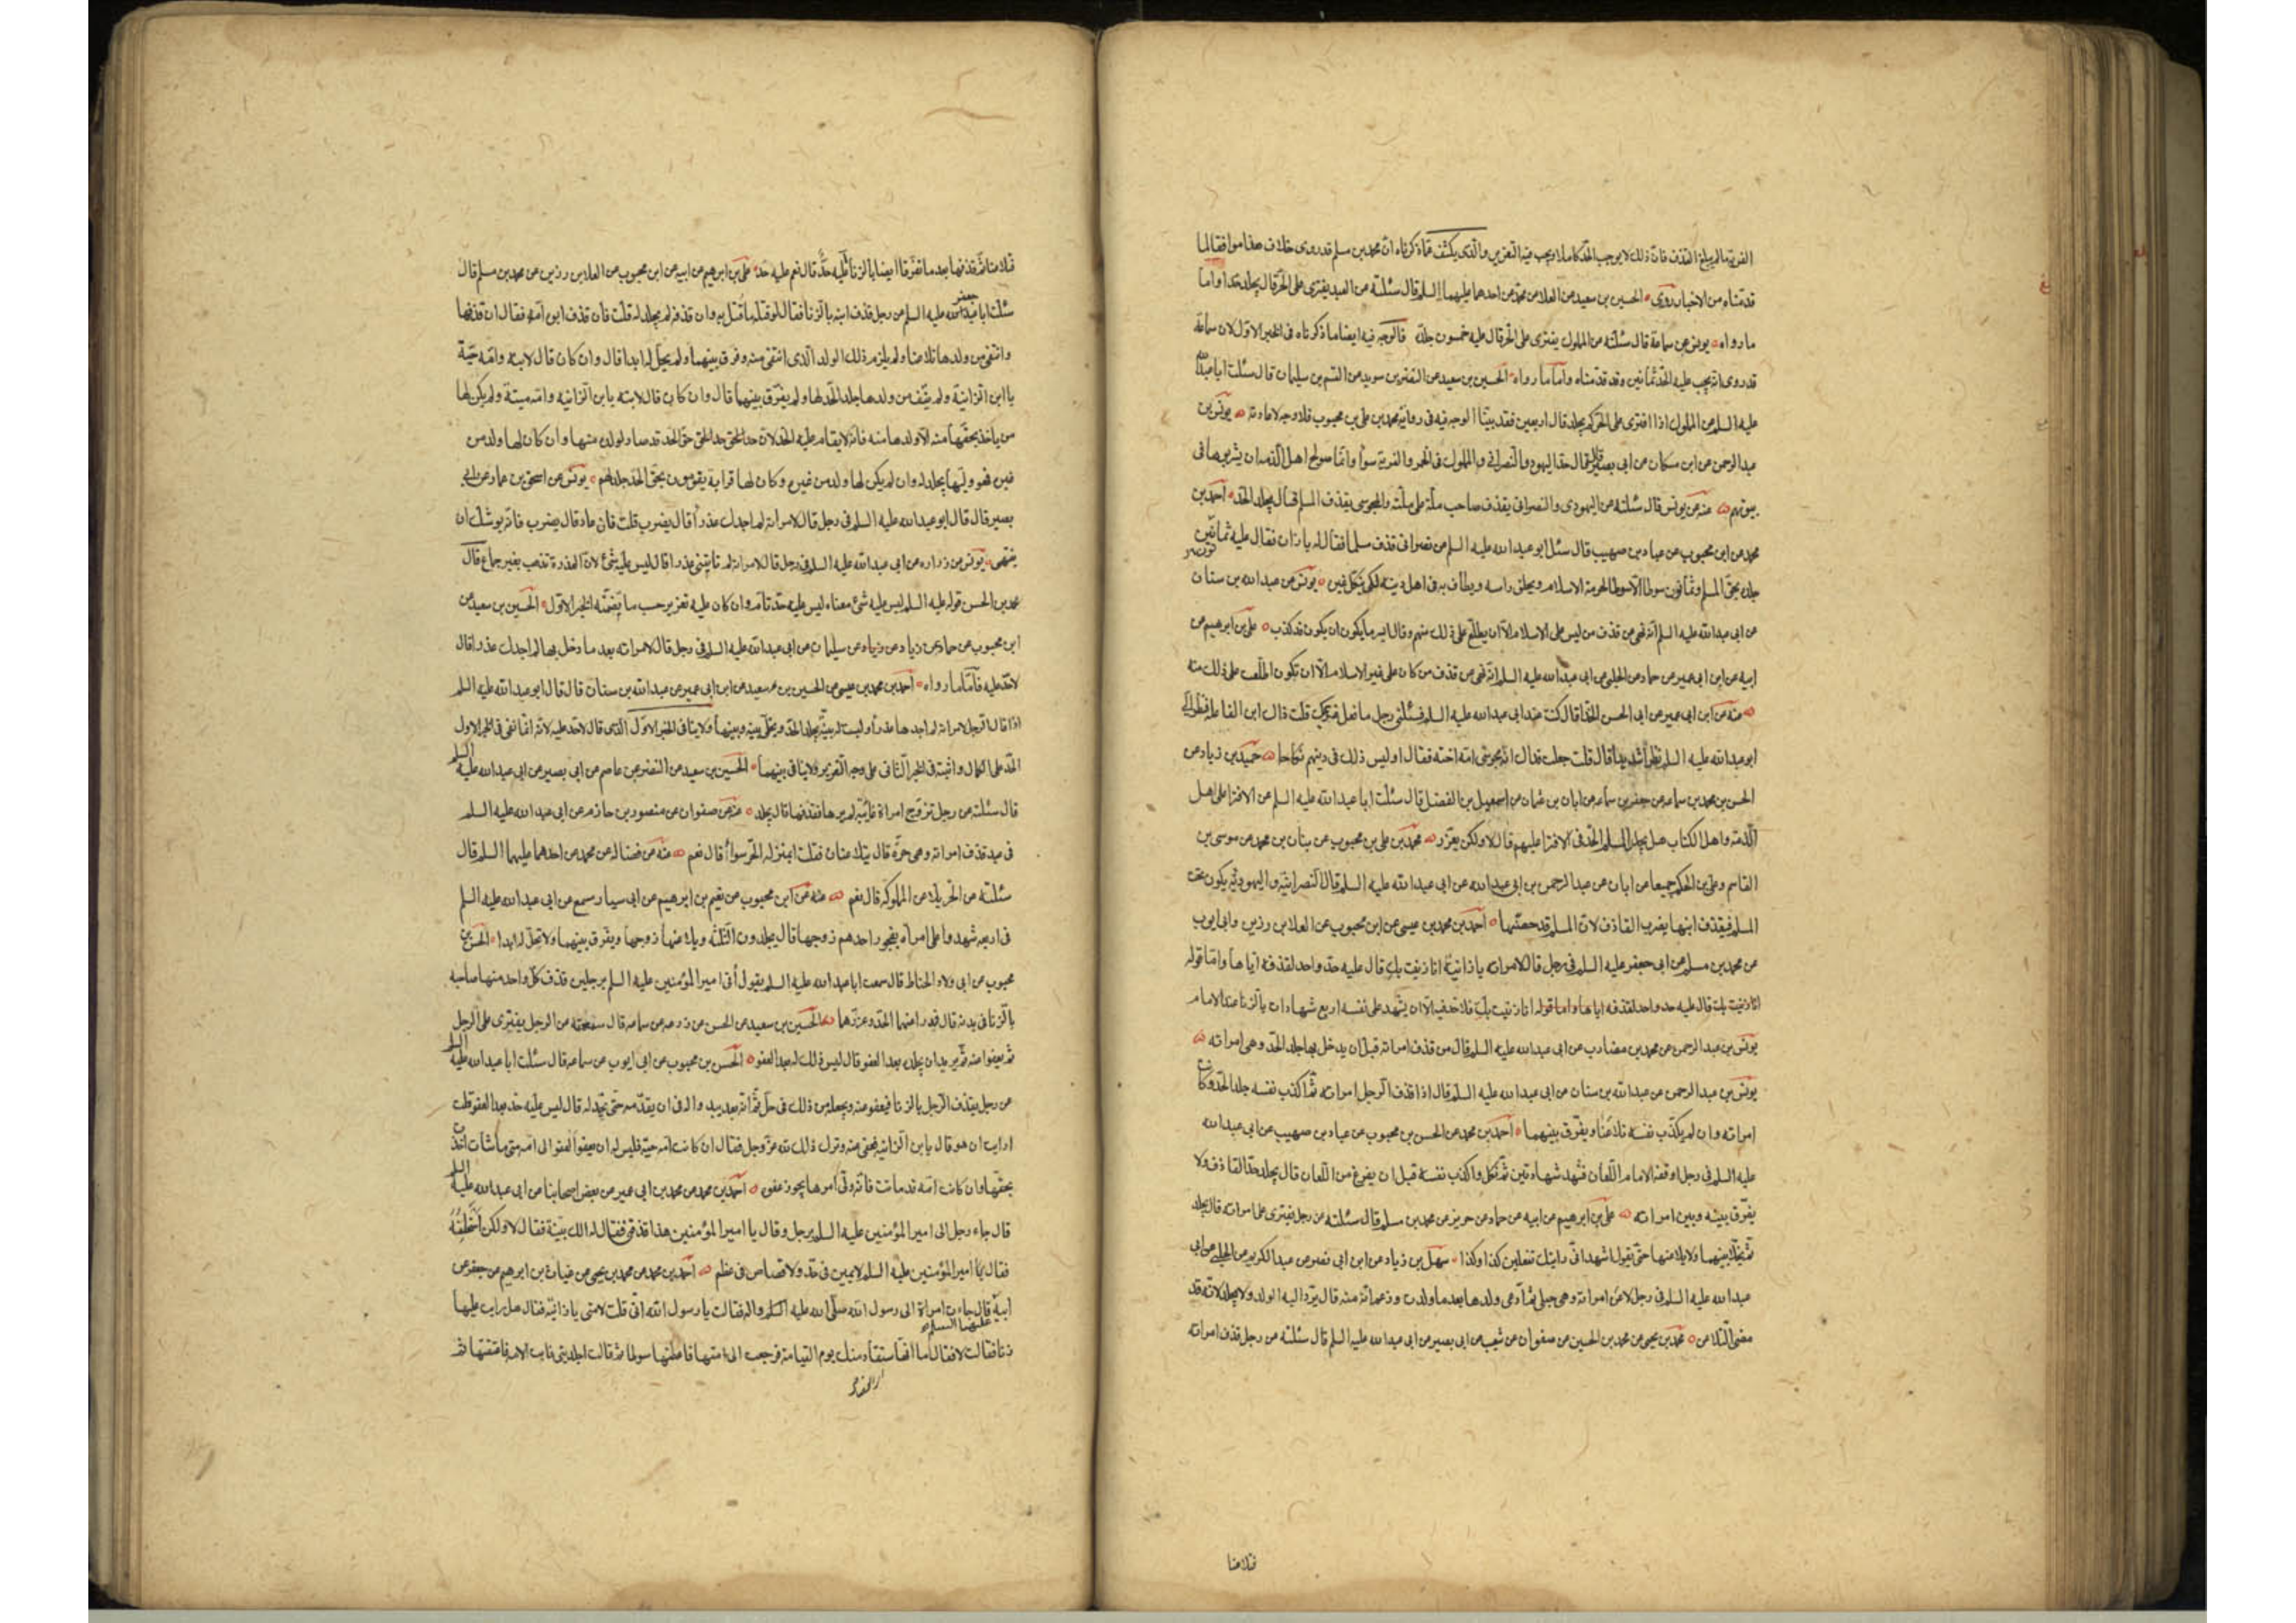 الفرية ما لم يبلغ القذف فان ذلك لا يوجب الحد كاملا ويجب فيه التعزير والذى يكشف عما ذكرناه ان محمد بن مسلم قد روى خلاف هذا موافقا لما
قدمناه من الاخبار روى الحسين بن سعيد عن العلا عن محمد عن احدهما عليهما السلم قال سئلته عن العبد يفترى على الحر قال يجلد حدا واما
ما رواه يونس عن سماعة قال سئلته عن المملوك يفترى على الحر قال عليه خمسون جلدة فالوجه فيه ايضا ما ذكرناه فى الخبر الاول لان سماعة
قد روى انه يجب عليه الحد ثمانين وقد قدمناه واما ما رواه الحسين بن سعيد عن النضر بن سويد عن القسم بن سليمان قال سئلت ابا عبد الله
عليه السلم عن المملوك اذا افترى على الحر كم يجلد قال اربعين فقد بينا الوجه فيه فى رواية محمد بن على بن محبوب فلا وجه لاعادته يونس بن
عبد الرحمن عن ابن مسكان عن ابى بصير قال قال حد اليهودى والنصرانى والمملوك فى الخمر والفرية سوا وانما صولح اهل الذمة ان يشربوها فى
بيوتهم عنه عن يونس قال سئلته عن اليهودى والنصرانى يقذف صاحب ملة على ملته والمجوسى يقذف المسلم قال يجلد الحد احمد بن
محمد عن ابن محبوب عن عباد بن صهيب قال سئل ابو عبد الله عليه السلم عن نصرانى قذف مسلما فقال له يا زان فقال عليه ثمانين
جلدة بحق المسلم وثمانون سوطا الا سوطا لحرمة الاسلام ويحلق راسه ويطاف به فى اهل دينه لكى ينكل غيره يونس عن عبد الله بن سنان
عن ابى عبد الله عليه السلم انه نهى عن قذف من ليس على الاسلام الا ان يطلع على ذلك منهم وقال ايسر ما يكون ان يكون قد كذب على بن ابرهيم عن
ابيه عن ابن ابى عمير عن حماد عن الحلبى عن ابى عبد الله عليه السلم انه نهى عن قذف من كان على غير الاسلام الا ان تكون اطلعت على ذلك منه
عنه عن ابن ابى عمير عن ابى الحسن الحذا قال كنت عند ابى عبد الله عليه السلم فسئلنى رجل ما فعل غريمك قلت ذاك ابن الفاعلة فنظر الى
ابو عبد الله عليه السلم نظرا شديدا قال قلت جعلت فداك انه مجوسى امه اخته فقال اوليس ذلك فى دينهم نكاحا حميد بن زياد عن
الحسن بن محمد بن سماعه عن جعفر بن سماعه عن ابان بن عثمان عن اسمعيل بن الفضل قال سئلت ابا عبد الله عليه السلم عن الافترا على اهل
الذمة واهل الكتاب هل يجلد المسلم الحد فى الافترا عليهم قال لا ولكن يعزر محمد بن على بن محبوب عن بنان بن محمد عن موسى بن
القاسم وعلى بن الحكم جميعا عن ابان عن عبد الرحمن بن ابى عبد الله عن ابى عبد الله عليه السلم قال النصرانية واليهودية يكون تحت
المسلم فيقذف ابنها يضرب القاذف لان المسلم قد حصنها احمد بن محمد بن عيسى عن ابن محبوب عن العلا بن رزين وابى ايوب
عن محمد بن مسلم عن ابى جعفر عليه السلم فى رجل قال لامراته يا زانية انا زنيت بك قال عليه حد واحد لقذفه اياها واما قوله
انا زنيت بك قال عليه حد واحد لقذفه اياها واما قوله انا زنيت بك فلا حد فيه الا ان يشهد على نفسه اربع شهادات بالزنا عند الامام
يونس بن عبد الرحمن عن محمد بن مضارب عن ابى عبد الله عليه السلم قال من قذف امراته قبل ان يدخل بها جلد الحد وهى امراته
يونس بن عبد الرحمن عن عبد الله بن سنان عن ابى عبد الله عليه السلم قال اذا قذف الرجل امراته ثم اكذب نفسه جلد الحد وكانت
امراته وان لم يكذب نفسه تلاعنا ويفرق بينهما احمد بن محمد عن الحسن بن محبوب عن عباد بن صهيب عن ابى عبد الله
عليه السلم فى رجل اوقفه الامام اللعان فشهد شهادتين ثم نكل واكذب نفسه قبل ان يفرغ من اللعان قال يجلد حد القاذف ولا
يفرق بينه وبين امراته على بن ابرهيم عن ابيه عن حماد عن حريز عن محمد بن مسلم قال سئلته عن رجل يفترى على امراته قال يجلد
ثم يخلا بينهما ولا يلاعنها حتى يقول اشهد انى رايتك تفعلين كذا وكذا سهل بن زياد عن ابن ابى نصر عن عبد الكريم عن الحلبى عن ابى
عبد الله عليه السلم فى رجل لاعن امراته وهى حبلى ثم ادعى ولدها بعد ما ولدت وزعم انه منه قال يرد اليه الولد ولا يجلد لانه قد
مضى التلاعن محمد بن يحيى عن محمد بن الحسين عن صفوان عن شعيب عن ابى بصير عن ابى عبد الله عليه السلم قال سئلته عن رجل قذف امراته
فتلاعنا
فتلاعنا ثم قذفها بعد ما تفرقا ايضا بالزنا عليه حد قال نعم عليه حد على بن ابرهيم عن ابيه عن ابن محبوب عن العلا بن رزين عن محمد بن مسلم قال
سئلت ابا جعفر عليه السلم عن رجل قذف ابنه بالزنا فقال لو قتله ما قتل به وان قذفه لم يجلد له قلت فان قذف ابوه امه فقال ان قذفها
وانتفى من ولدها تلاعنا ولم يلزم ذلك الولد الذى انتفى منه وفرق بينهما ولم يحل له ابدا قال وان كان قال لابنه وامه حية
يا ابن الزانية ولم ينتف من ولدها جلد الحد لها ولم يفرق بينهما قال وان كان قال لابنه يا بن الزانية وامه ميتة ولم يكن لها
من ياخذ بحقها منه الا ولدها منه فانه لا يقام عليه الحد لان حق الحد قد صار لولده منها وان كان لها ولد من
غيره فهو وليها يجلد له وان لم يكن لها ولد من غيره وكان لها قرابة يقومون بحق الحد جلد لهم يونس عن اسحق بن عمار عن ابى
بصير قال قال ابو عبد الله عليه السلم فى رجل قال لامراته لم اجدك عذرا قال يضرب قلت فان عاد قال يضرب فانه يوشك ان
ينتهى يونس عن زراره عن ابى عبد الله عليه السلم فى رجل قال لامراته لم تاتينى عذرا قال ليس عليه شئ لان العذرة تذهب بغير جماع قال
محمد بن الحسن قوله عليه السلم ليس عليه شئ معناه ليس عليه حد تام وان كان عليه تعزير حسب ما تضمنه الخبر الاول الحسين بن سعيد عن
ابن محبوب عن حماد عن زياد عن سليمان عن ابى عبد الله عليه السلم فى رجل قال لامراته بعد ما دخل بها لم اجدك عذرا قال
لا حد عليه فاما ما رواه احمد بن محمد بن عيسى عن الحسين بن سعيد عن ابن ابى عمير عن عبد الله بن سنان قال قال ابو عبد الله عليه السلم
اذا قال الرجل لامراته لم اجدها عذرا وليست له بينة يجلد الحد ويخلى بينه وبينها ولا ينافى الخبر الاول الذى قال لا حد عليه لانه انما نفى فى الخبر الاول
الحد على الكمال واثبته فى الخبر الثانى على وجه التعزير فلا ينافى بينهما الحسين بن سعيد عن النضر عن عاصم عن ابى بصير عن ابى عبد الله عليه السلم
قال سئلته عن رجل تزوج امراة غائبة لم يرها فقذفها قال يجلد عنه عن صفوان عن منصور بن حازم عن ابى عبد الله عليه السلم
فى عبد قذف امراته وهى حرة قال يتلاعنان فقلت ابمنزلة الحر سوا قال نعم عنه عن فضاله عن محمد عن احدهما عليهما السلم قال
سئلته عن الحر يلاعن المملوكة قال نعم عنه عن ابن محبوب عن نعيم بن ابرهيم عن ابى سيار مسمع عن ابى عبد الله عليه السلم
فى اربعه شهدوا على امراه بفجور احدهم زوجها قال يجلدون الثلثة ويلاعنها زوجها ويفرق بينهما ولا تحل له ابدا الحسن بن
محبوب عن ابى ولاد الحناط قال سمعت ابا عبد الله عليه السلم يقول اتى امير المؤمنين عليه السلم برجلين قذف كل واحد منهما صاحبه
بالزنا فى بدنه قال فدرا عنهما الحد وعزرهما الحسين بن سعيد عن الحسن عن زرعه عن سماعه قال سئلته عن الرجل يفترى على الرجل
ثم يعفوا عنه ثم يريد ان يجلده بعد العفو قال ليس ذلك له بعد العفو الحسن بن محبوب عن ابى ايوب عن سماعه قال سئلت ابا عبد الله عليه السلم
عن رجل يقذف الرجل بالزنا فيعفو عنه ويجعله من ذلك فى حل ثم انه بعد يبدو له فى ان يقدمه حتى يجلده قال ليس عليه حد بعد العفو قلت
ارايت ان هو قال يا بن الزانيه فعفى عنه وترك ذلك لله عز وجل فقال ان كانت امه حية فليس له ان يعفوا العفو الى امه متى شأت اخذت
بحقها وان كانت امه قد ماتت فانه ولى امرها يجوز عفوه احمد بن محمد عن محمد بن ابى عمير عن بعض اصحابنا عن ابى عبد الله عليه السلم
قال جاء رجل الى امير المؤمنين عليه السلم برجل وقال يا امير المؤمنين هذا قذفنى فقال له الك بينة فقال لا ولكن استحلفه
فقال امير المؤمنين عليه السلم لا يمين فى حد ولا قصاص فى عظم احمد بن محمد عن محمد بن يحيى عن غياث بن ابرهيم عن جعفر عن
ابيه عليهما السلم قال جاءت امراة الى رسول الله صلى الله عليه السلم واله فقالت يا رسول الله انى قلت لامتى يا زانية فقال هل رايت عليها
زنا فقالت لا فقال اما انها ستقاد منك يوم القيامة فرجعت الى امتها فاعطتها سوطا ثم قالت اجلدينى فابت الامة فاعتقتها ثم